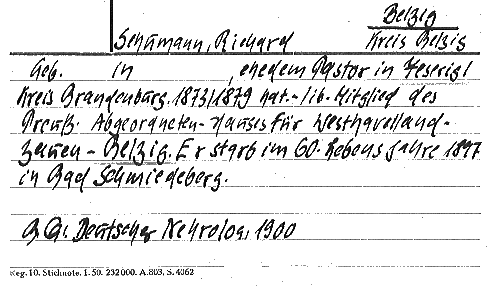 Belzig
Schumann, Richard Kreis Belzig
Geb. in , ehedem Pastor in Jeserig/
Kreis Brandenburg. 1873/1879 nat.-lib. Mitglied des
Preuß. Abgeordneten-Hauses für Westhavelland-
Zauch-Belzig. Er starb im 60. Lebensjahre 1897
in Bad Schmiedeberg.
B.G. Deutscher Nekrolog, 1900
Reg. 10. Stichnote. 1. 50. 232000. A. 803, S. 4062